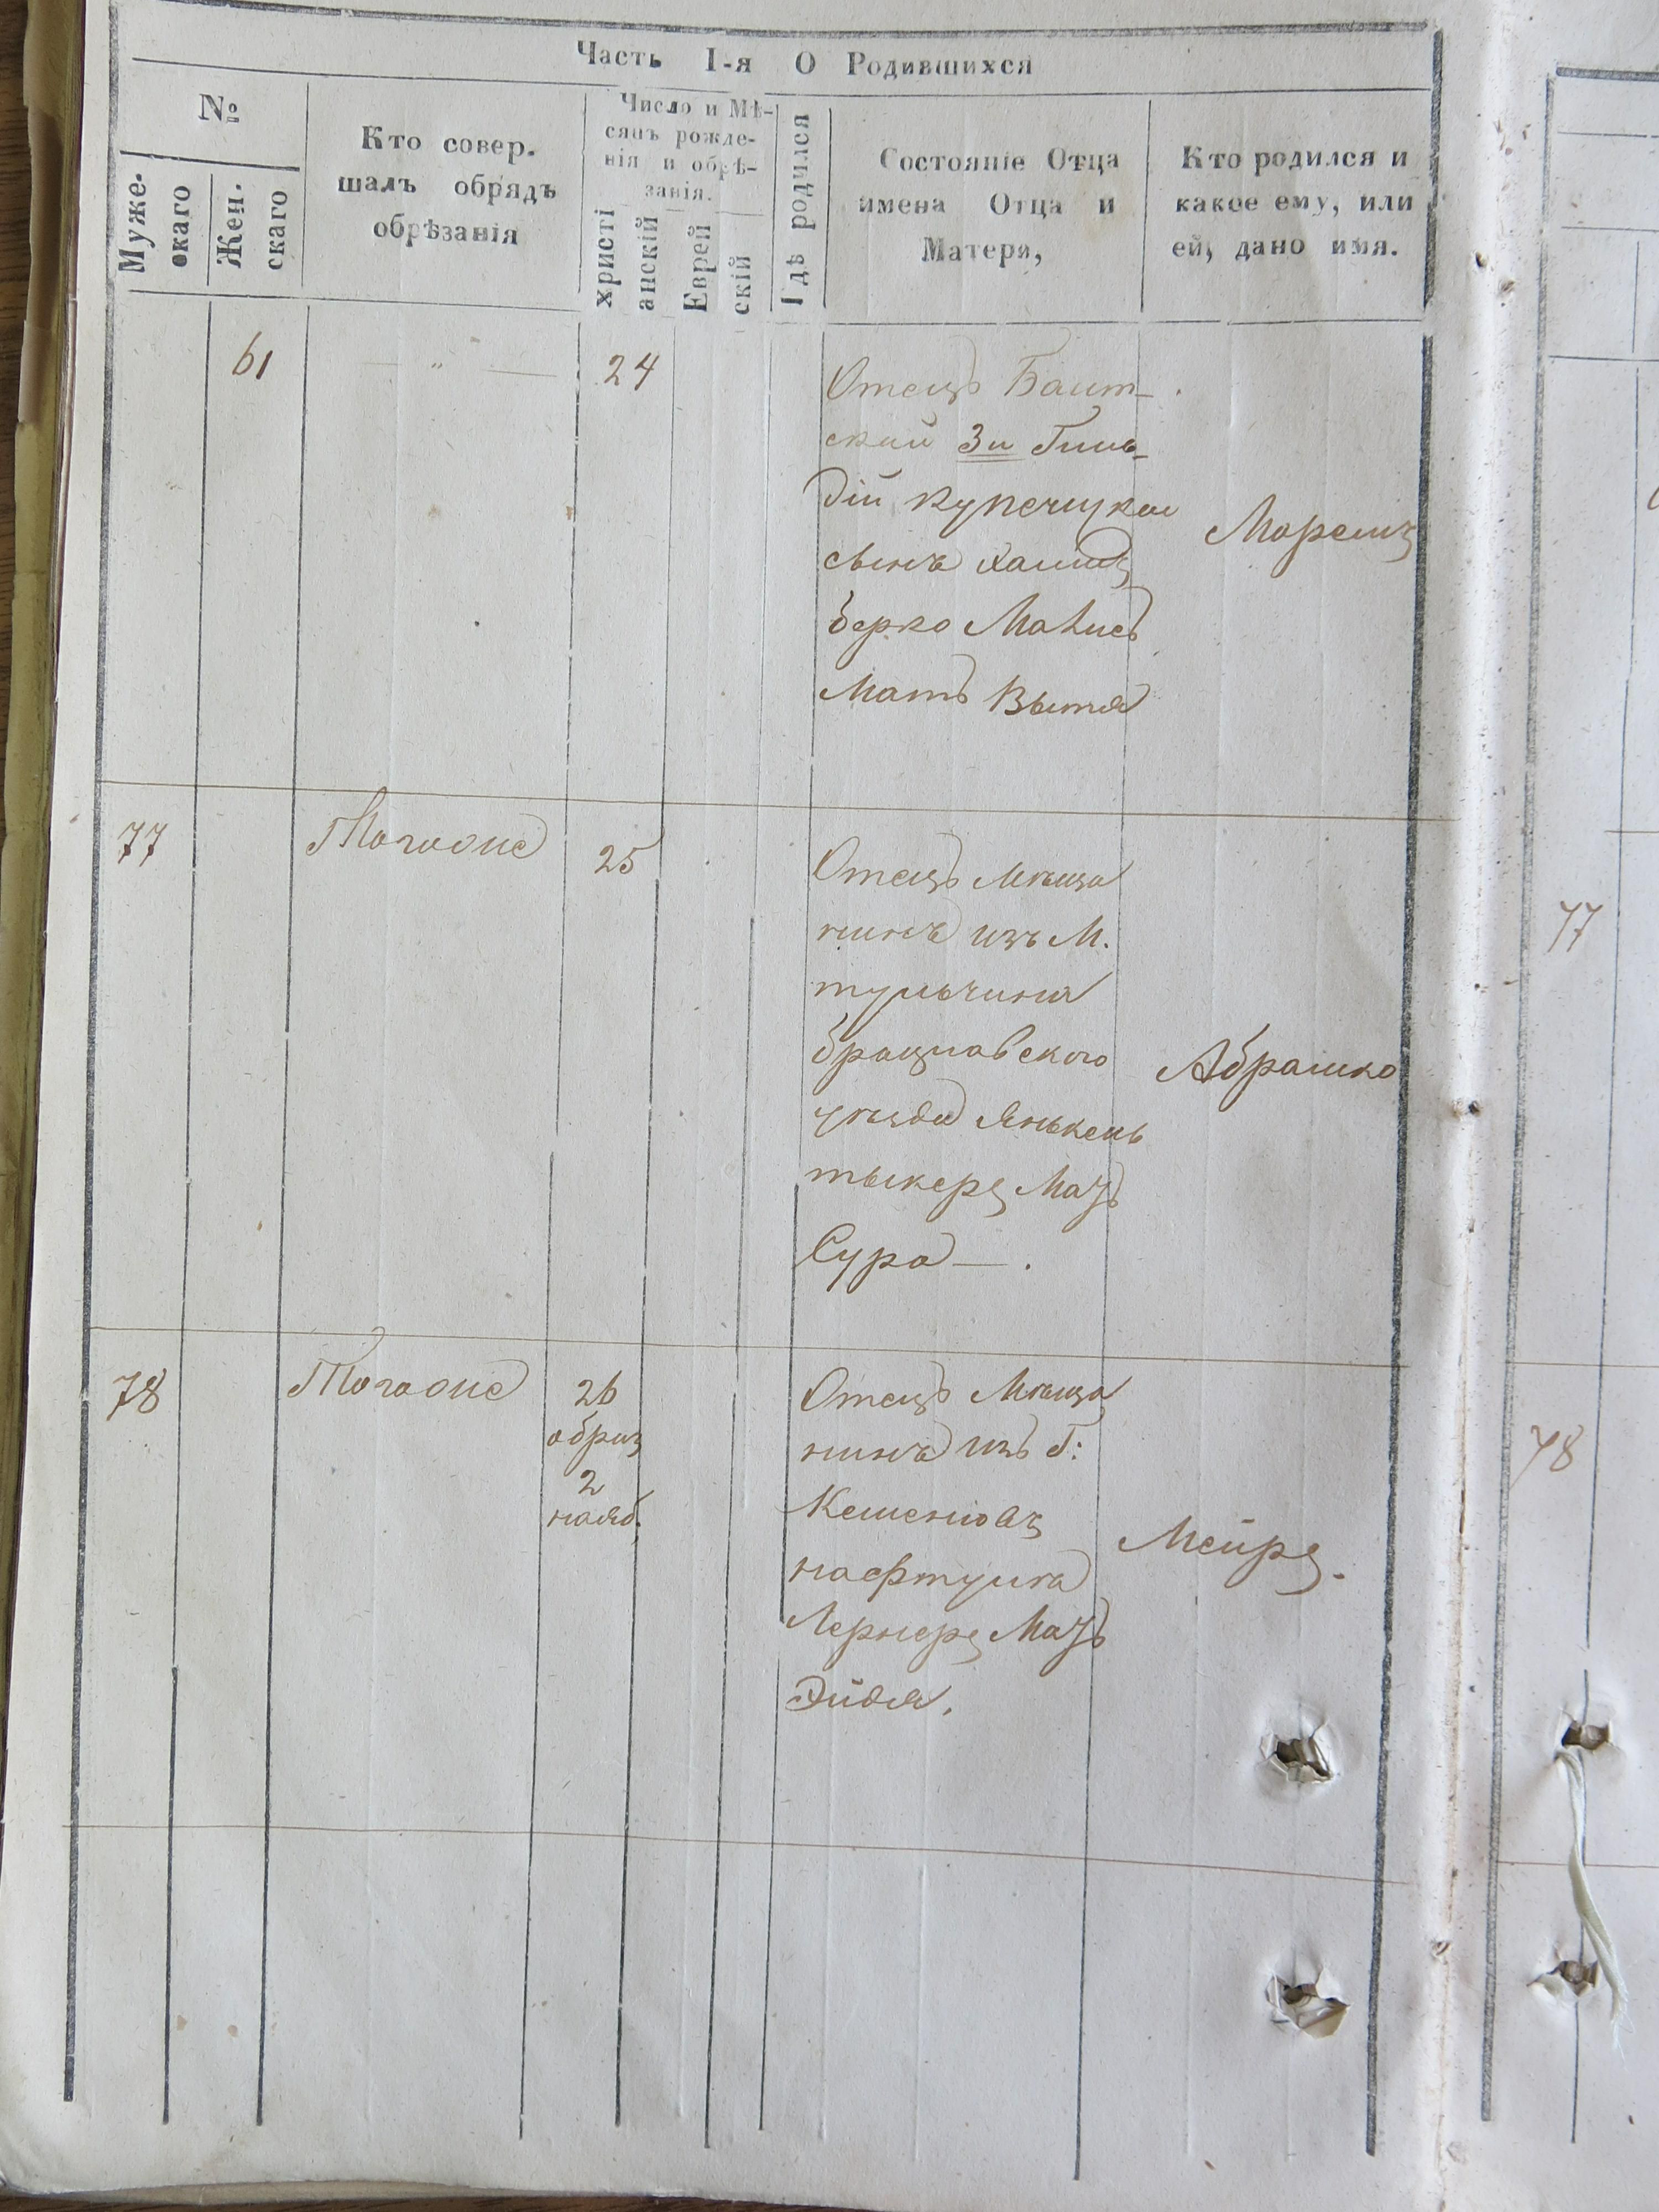 Часть I-я О Родившихся
№
Муже-
скаго
Жен.
скаго
Кто совер-
шалъ обрядъ
обрѣзанія
Число и Мѣ-
сяцъ рожде-
нія и обрѣ-
занія.
христі
анскій
Еврей
скій
Гдѣ родился
Состояніе Отца
имена Отца и
Матери,
Кто родился и
какое ему, или
ей, дано имя.
61
— " —
24
Отецъ Балт-
ский 3й Гиль-
дій Купечицкой
сынъ Хаимъ
берко
Мать
77
25
Отецъ мѣща
нинъ изъ М.
тульчина
брацлавского
уѣзда Янькель
Мать
Сура — .
Абрашко
78
26
обрѣз
2
нояб.
Отецъ Мѣща
нинъ изъ Г:
Кешеневъ
нафтула
Лернеръ Мать
Эйдя.
Мейръ.
77
78